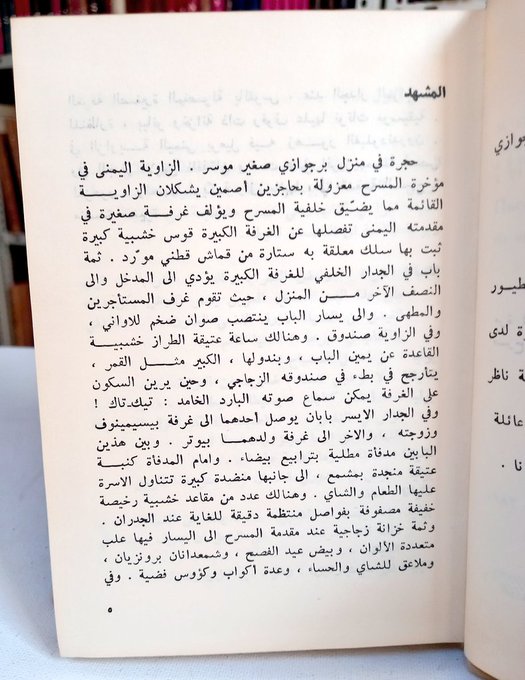 المشهد
حجرة في منزل برجوازي صغير موسر . الزاوية اليمنى في
مؤخرة المسرح معزولة بحاجزين أصمين يشكلان الزاويــة
القائمة مما يضتيق خلفية المسرح ويؤلف غرفــة صغيرة في
مقدمته اليمنى تفصلها عن الغرفة الكبيرة قوس خشبية كبيرة
ثبت بها سلك معلقة به ستارة من قماش قطني مورّد . ثمة
باب في الجدار الخلفي للغرفة الكبيرة يؤدي الى المدخل والى
النصف الآخر مــن المنزل ، حيث تقوم غرف المستأجرين
والمطهى . والى يسار الباب ينتصب صوان ضخم للاواني ،
وفي الزاوية صندوق . وهنالك ساعة عتيقة الطراز خشبيــة
القاعدة عن يمين الباب ، وبندولها ، الكبير مثــل القمر ،
يتأرجح في بطء في صندوقه الزجاجي ، وحين يرين السكون
على الغرفة يمكن سماع صوته البارد الخامد : تيك-تاك !
وفي الجدار الايسر بابان يوصل أحدهما الى غرفة بيسيمينوف
وزوجته ، والاخر الى غرفة ولدهمــا بيوتر . وبين هذين
البابين مدفأة مطلية بترابيع بيضاء . وامام المدفأة كنبــة
عتيقة منجدة بمشمع ، الى جانبها منضدة كبيرة تتناول الاسرة
عليها الطعام والشاي . وهنالك عدد من مقاعد خشبية رخيصة
خفيفة مصفوفة بفواصل منتظمة دقيقة للغاية عند الجدران .
وثمة خزانة زجاجية عند مقدمة المسرح الى اليسار فيها علب
متعددة الألوان ، وبيض عيد الفصح ، وشمعدانان برونزيان ،
وملاعق للشاي والحساء ، وعدة أكواب وكؤوس فضية . وفي
٥
جوازي
طيور
ة لدى
ة ناظر
عائلة
نا .